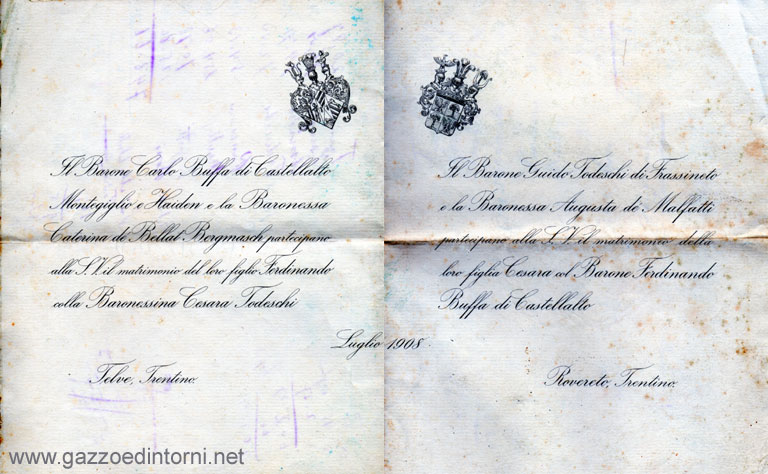 Il Barone Carlo Buffa di Castellalto
Montegiglio e Haiden e la Baronessa
Caterina de Bellat-Bergmasch partecipano
alla S. V. il matrimonio del loro figlio Ferdinando
colla Baronessina Cesara Todeschi
Telve, Trentino.
Il Barone Guido Todeschi di Frassineto
e la Baronessa Augusta de Malfatti
partecipano alla S. V. il matrimonio della
loro figlia Cesara col Barone Ferdinando
Buffa di Castellalto
Luglio 1908.
Rovereto, Trentino.
www.gazzoedintorni.net